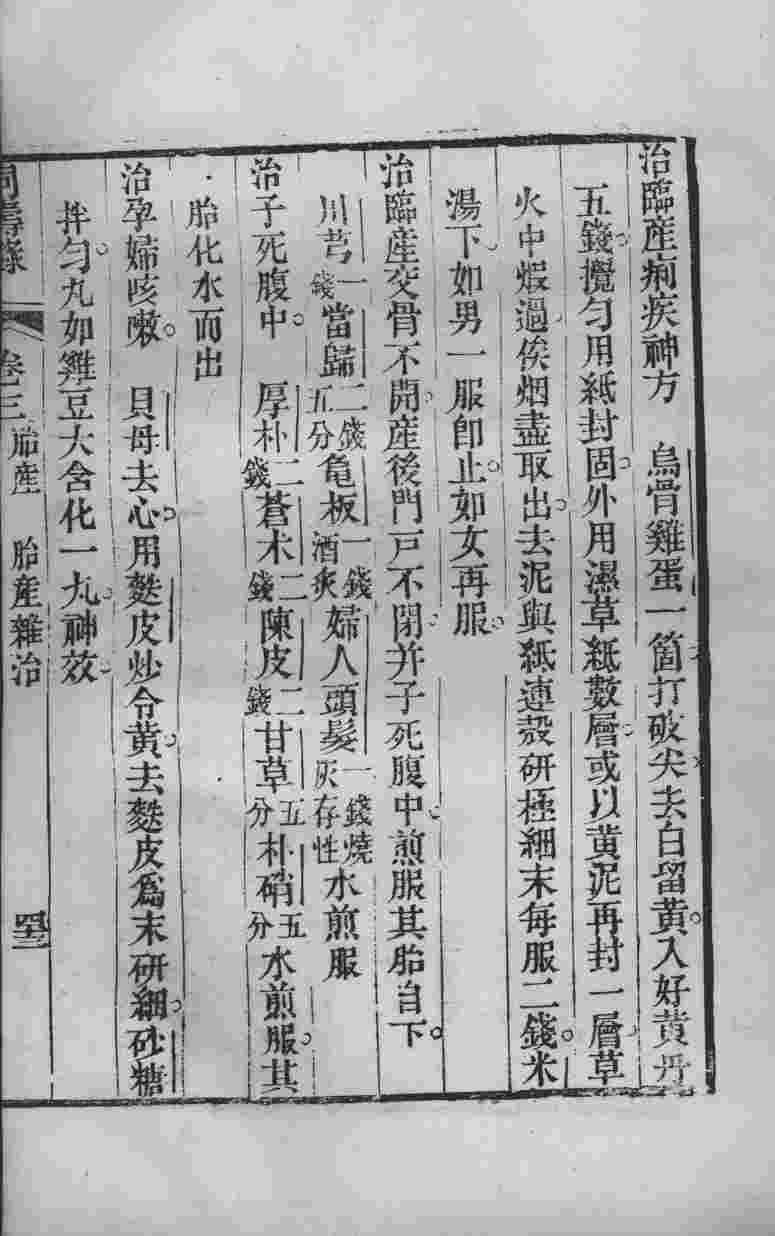 治臨產痢疾神方　烏骨雞蛋一箇打破尖去白留黃入好黃丹
五錢攪勻用紙封固外用濕草紙數層或以黃泥再封一層草
火中煨過俟烟盡取出去泥與紙連殼研極細末每服二錢米
湯下如男一服卽止如女再服
治臨產交骨不開產後門戸不閉并子死腹中煎服其胎自下
川芎一錢當歸二錢五分龜板一錢酒炙婦人頭髮一錢燒灰存性水煎服
治子死腹中　厚朴二錢蒼朮二錢陳皮二錢甘草五分朴硝五分水煎服其
胎化水而出
治孕婦咳嗽　貝母去心用麩皮炒令黃去麩皮爲末研細砂糖
拌勻丸如雞豆大含化一丸神效
壽 卷三 胎產　胎產雜治